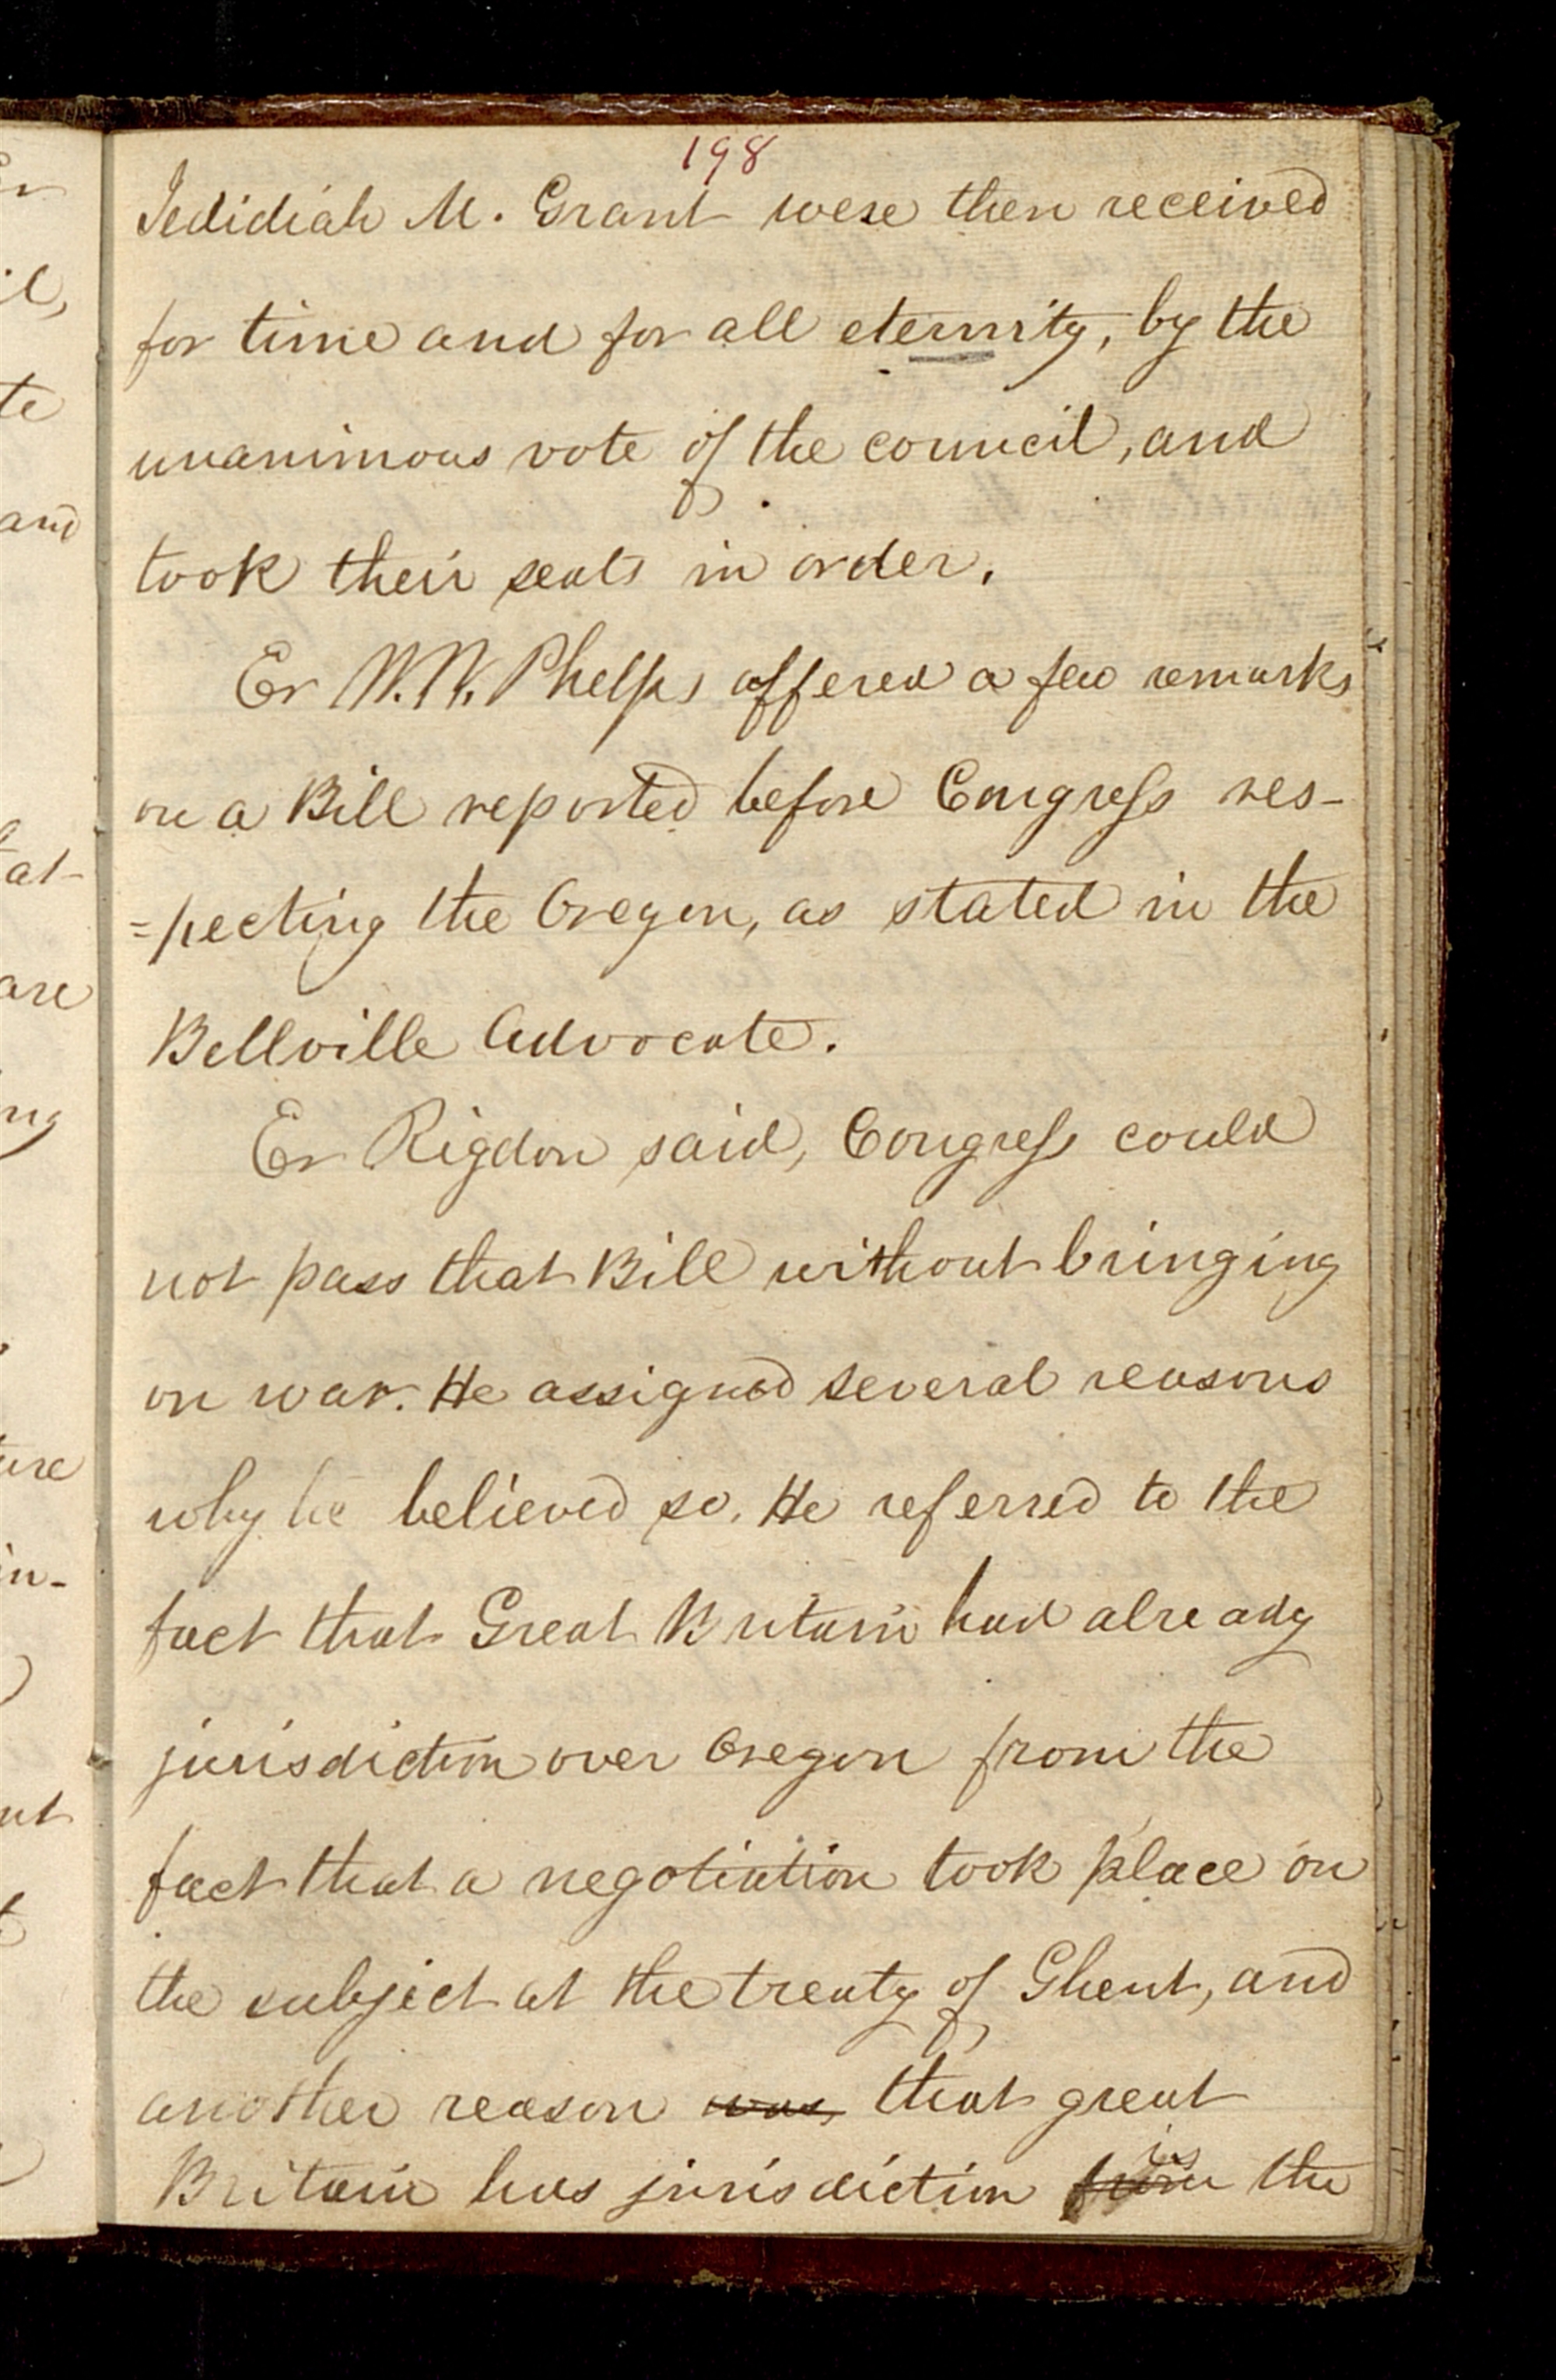 198
Jedidiah M. Grant were then received
for time and for all eternity, by the
unanimous vote of the council, and
took their seats in order.
Er W. W. Phelps offered a few remarks
on a Bill reported before Congress res-
=pecting the Oregon, as stated in the
Bellville Advocate.
Er Rigdon said, Congress could
not pass that Bill without bringing
on war. He assigned several reasons
why he believed so. He referred to the
fact that Great Britain had already
jurisdiction over Oregon from the
fact that a negotiation took place on
the subject at the treaty of Ghent, and
another reason was, that great
is
Britain has jurisdiction from the
te
and
are
in-